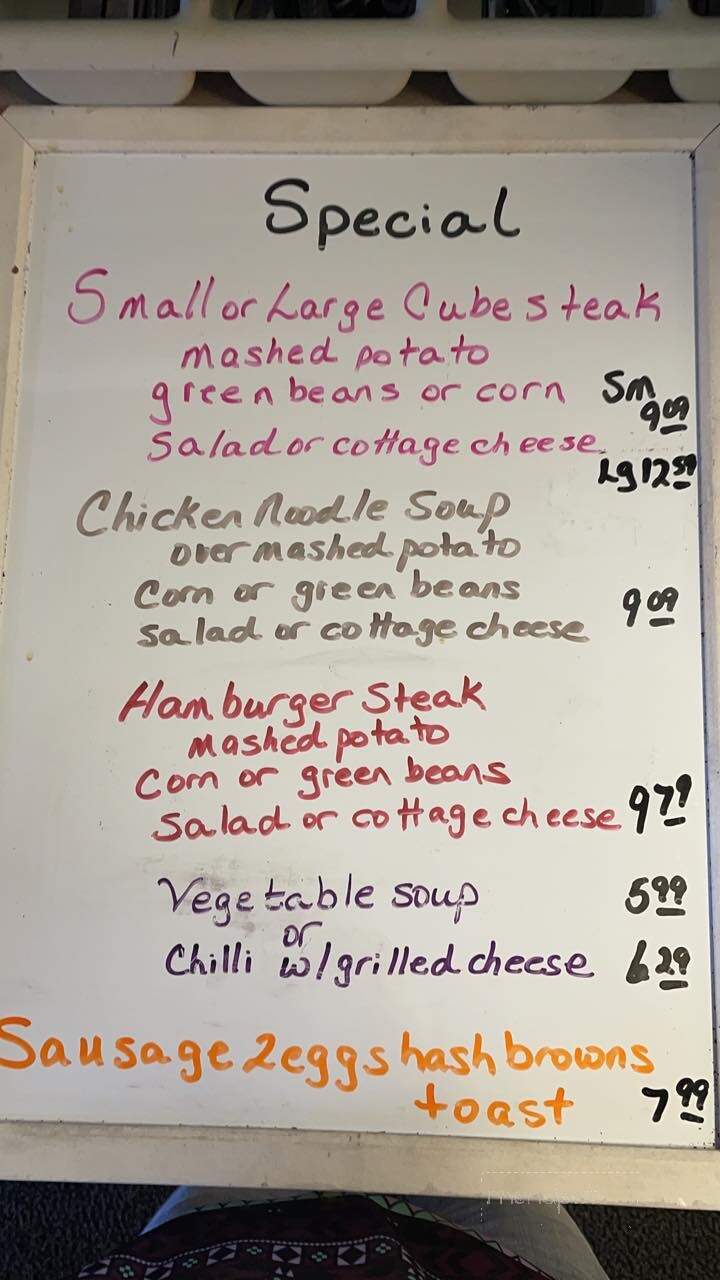 Special
Small or Large Cube steak
mashed potato
green beans or corn Sm 9.09
Salad or cottage cheese
Lg 12.59
Chicken Noodle Soup
over mashed potato
Corn or green beans 9.09
salad or cottage cheese
Hamburger Steak
mashed potato
Corn or green beans
Salad or cottage cheese 9.79
Vegetable soup 5.99
or
Chilli w/grilled cheese 6.29
Sausage 2 eggs hash browns
toast 7.99